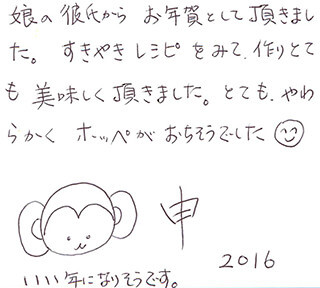 娘の彼氏から お年賀として頂きまし
た。すきやきレシピをみて、作りとて
も美味しく頂きました。とても、やわ
らかく ホッペがおちそうでした
申
2016
いい年になりそうです。